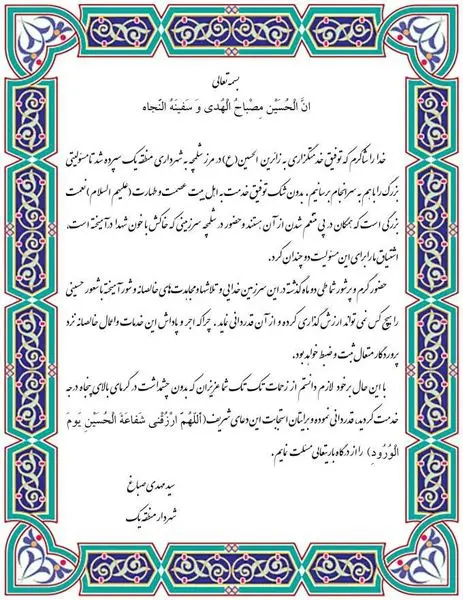 بسمه تعالی
انَّ الْحُسَیْن مِصْباحُ الْهُدی وَ سَفینَهُ النَّجاه
خدا را شاکرم که توفیق خدمتگزاری به زائرین الحسین(ع) در مرز شلمچه به شهرداری منطقه یک سپرده شد تا مسؤلیتی
بزرگ را باهم به سرانجام برسانیم. بدون شک توفیق خدمت به اهل بیت عصمت و طهارت (علیهم السلام) نعمت
بزرگی است که همگان در پی متنعم شدن از آن هستند و حضور در شلمچه سرزمینی که خاکش با خون شهدا درآمیخته است،
اشتیاق ما را برای این مسئولیت دو چندان کرد.
حضور گرم و پرشور شما طی دو ماه گذشته در این سرزمین خدایی و تلاشها و مجاهدت‌های خالصانه و شور آمیخته با شعور حسینی
را هیچ کس نمی تواند ارزش گذاری کرده و از آن قدردانی نماید. چرا که اجر و پاداش این خدمات و اعمال خالصانه نزد
پروردگار متعال ثبت و ضبط خواهد بود.
با این حال بر خود لازم دانستم از زحمات تک تک شما عزیزان که بدون چشمداشت در گرمای بالای پنجاه درجه
خدمت کردید، قدردانی نموده و برایتان استجابت این دعای شریف(اَللّهُمَّ ارْزُقْنی شَفاعَةَ الْحُسَیْنِ یَومَ
الْوُرُودِ) را از درگاه باریتعالی مسئلت نمایم.
سید مهدی صباغ
شهردار منطقه یک